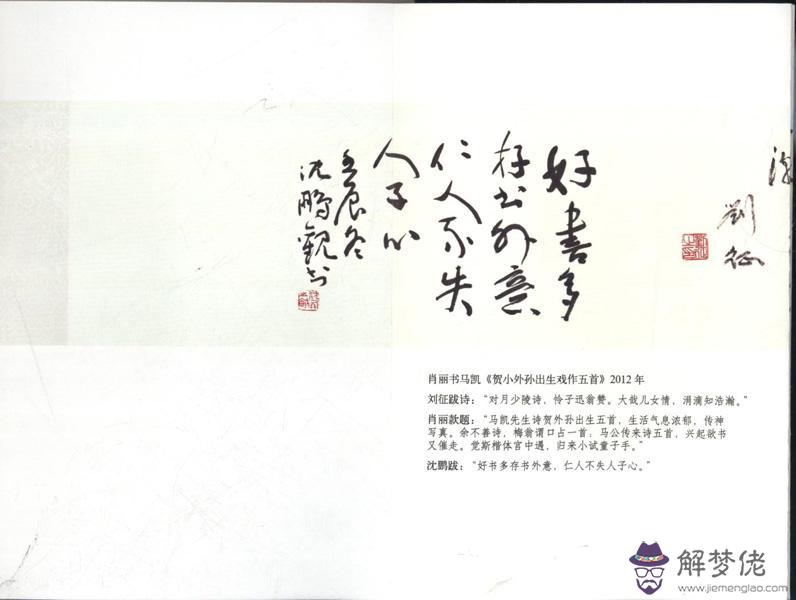 劉征
好書多
存书外意
仁人不失
人子心
壬辰冬
沈鵬觀
肖丽书马凯《贺小外孙出生戏作五首》2012 年
刘征跋诗：“对月少陵诗，怜子迅翁赞。大哉儿女情，涓滴知浩瀚。”
肖丽款题：“马凯先生诗贺外孙出生五首，生活气息浓郁，传神
写真。余不善诗，梅翁谓口占一首：马公传来诗五首，兴起欲书
又催走。觉斯楷体宫中遇，归来小试童子手。”
沈鹏跋：“好书多存书外意，仁人不失人子心。”
解梦佬
www.jiemenglao.com